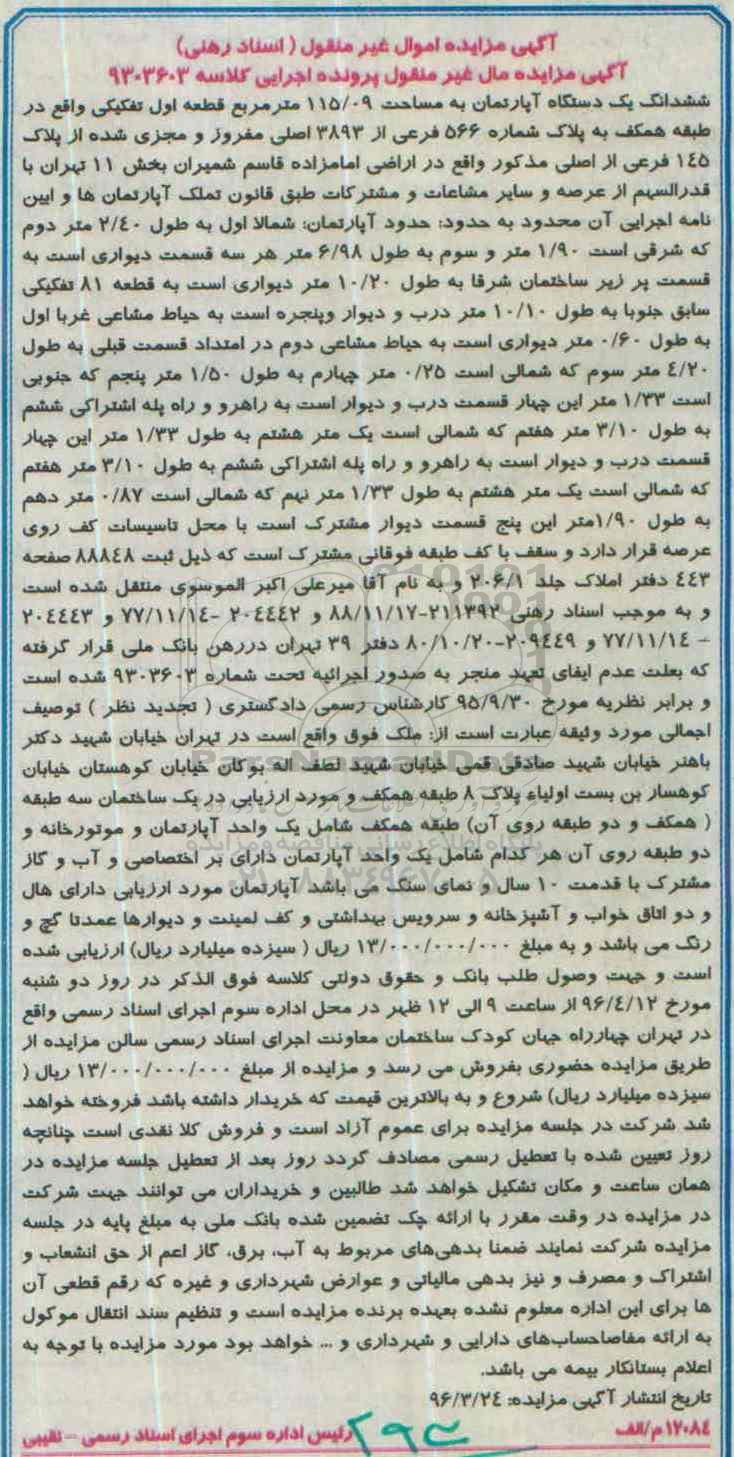 آگهی مزایده اموال غیر منقول ( اسناد رهنی)
آگهی مزایده مال غیر منقول پرونده اجرایی کلاسه ۹۳۰۳۶۰۳
ششدانگ یک دستگاه آپارتمان به مساحت ۱۱۵/۰۹ مترمربع قطعه اول تفکیکی واقع در
طبقه همکف به پلاک شماره ۵۶۶ فرعی از ۳۸۹۳ اصلی مفروز و مجزی شده از پلاک
۱۴۵ فرعی از اصلی مذکور واقع در اراضی امامزاده قاسم شمیران بخش ۱۱ تهران با
قدرالسهم از عرصه و سایر مشاعات و مشترکات طبق قانون تملک آپارتمان ها و ایین
نامه اجرایی آن محدود به حدود: حدود آپارتمان: شمالا اول به طول ۲/۴۰ متر دوم
که شرقی است ۱/۹۰ متر و سوم به طول ۶/۹۸ متر هر سه قسمت دیواری است به
قسمت پر زیر ساختمان شرقا به طول ۱۰/۲۰ متر دیواری است به قطعه ۸۱ تفکیکی
سابق جنوبا به طول ۱۰/۱۰ متر درب و دیوار وپنجره است به حیاط مشاعی غربا اول
به طول ۰/۶۰ متر دیواری است به حیاط مشاعی دوم در امتداد قسمت قبلی به طول
۴/۲۰ متر سوم که شمالی است ۰/۲۵ متر چهارم به طول ۱/۵۰ متر پنجم که جنوبی
است ۱/۳۳ متر این چهار قسمت درب و دیوار است به راهرو و راه پله اشتراکی ششم
به طول ۳/۱۰ متر هفتم که شمالی است یک متر هشتم به طول ۱/۳۳ متر این چهار
قسمت درب و دیوار است به راهرو و راه پله اشتراکی ششم به طول ۳/۱۰ متر هفتم
که شمالی است یک متر هشتم به طول ۱/۳۳ متر نهم که شمالی است ۰/۸۷ متر دهم
به طول ۱/۹۰متر این پنج قسمت دیوار مشترک است با محل تاسیسات کف روی
عرصه قرار دارد و سقف با کف طبقه فوقانی مشترک است که ذیل ثبت ۸۸۸۴۸ صفحه
۴۴۳ دفتر املاک جلد ۲۰۶/۱ و به نام آقا میرعلی اکبر الموسوی منتقل شده است
و به موجب اسناد رهنی ۲۱۱۳۹۲-۸۸/۱۱/۱۷ و ۲۰۴۴۴۲ -۷۷/۱۱/۱۴ و ۲۰۴۴۴۳
- ۷۷/۱۱/۱۴ و ۲۰۹۴۴۹-۸۰/۱۰/۲۰ دفتر ۳۹ تهران دررهن بانک ملی قرار گرفته
که بعلت عدم ایفای تعهد منجر به صدور اجرائیه تحت شماره ۹۳۰۳۶۰۳ شده است
و برابر نظریه مورخ ۹۵/۹/۳۰ کارشناس رسمی دادگستری ( تجدید نظر ) توصیف
اجمالی مورد وثیقه عبارت است از: ملک فوق واقع است در تهران خیابان شهید دکتر
باهنر خیابان شهید صادقی قمی خیابان شهید لطف اله بوکان خیابان کوهستان خیابان
کوهسار بن بست اولیاء پلاک ۸ طبقه همکف و مورد ارزیابی در یک ساختمان سه طبقه
( همکف و دو طبقه روی آن) طبقه همکف شامل یک واحد آپارتمان و موتورخانه و
دو طبقه روی آن هر کدام شامل یک واحد آپارتمان دارای بر اختصاصی و آب و گاز
مشترک با قدمت ۱۰ سال و نمای سنگ می باشد آپارتمان مورد ارزیابی دارای هال
و دو اتاق خواب و آشپزخانه و سرویس بهداشتی و کف لمینت و دیوارها عمدتا گچ و
رنگ می باشد و به مبلغ ۱۳/۰۰۰/۰۰۰/۰۰۰ ریال ( سیزده میلیارد ریال) ارزیابی شده
است و جهت وصول طلب بانک و حقوق دولتی کلاسه فوق الذکر در روز دو شنبه
مورخ ۹۶/۴/۱۲ از ساعت ۹ الی ۱۲ ظهر در محل اداره سوم اجرای اسناد رسمی واقع
در تهران چهارراه جهان کودک ساختمان معاونت اجرای اسناد رسمی سالن مزایده از
طریق مزایده حضوری بفروش می رسد و مزایده از مبلغ ۱۳/۰۰۰/۰۰۰/۰۰۰ ریال (
سیزده میلیارد ریال) شروع و به بالاترین قیمت که خریدار داشته باشد فروخته خواهد
شد شرکت در جلسه مزایده برای عموم آزاد است و فروش کلا نقدی است چنانچه
روز تعیین شده با تعطیل رسمی مصادف گردد روز بعد از تعطیل جلسه مزایده در
همان ساعت و مکان تشکیل خواهد شد طالبین و خریداران می توانند جهت شرکت
در مزایده در وقت مقرر با ارائه چک تضمین شده بانک ملی به مبلغ پایه در جلسه
مزایده شرکت نمایند ضمنا بدهی‌های مربوط به آب، برق، گاز اعم از حق انشعاب و
اشتراک و مصرف و نیز بدهی مالیاتی و عوارض شهرداری و غیره که رقم قطعی آن
ها برای این اداره معلوم نشده بعهده برنده مزایده است و تنظیم سند انتقال موکول
به ارائه مفاصاحساب‌های دارایی و شهرداری و ... خواهد بود مورد مزایده با توجه به
اعلام بستانکار بیمه می باشد.
تاریخ انتشار آگهی مزایده: ۹۶/۳/۲۴
۱۲۰۸۴م/الف رئیس اداره سوم اجرای اسناد رسمی - نقیبی